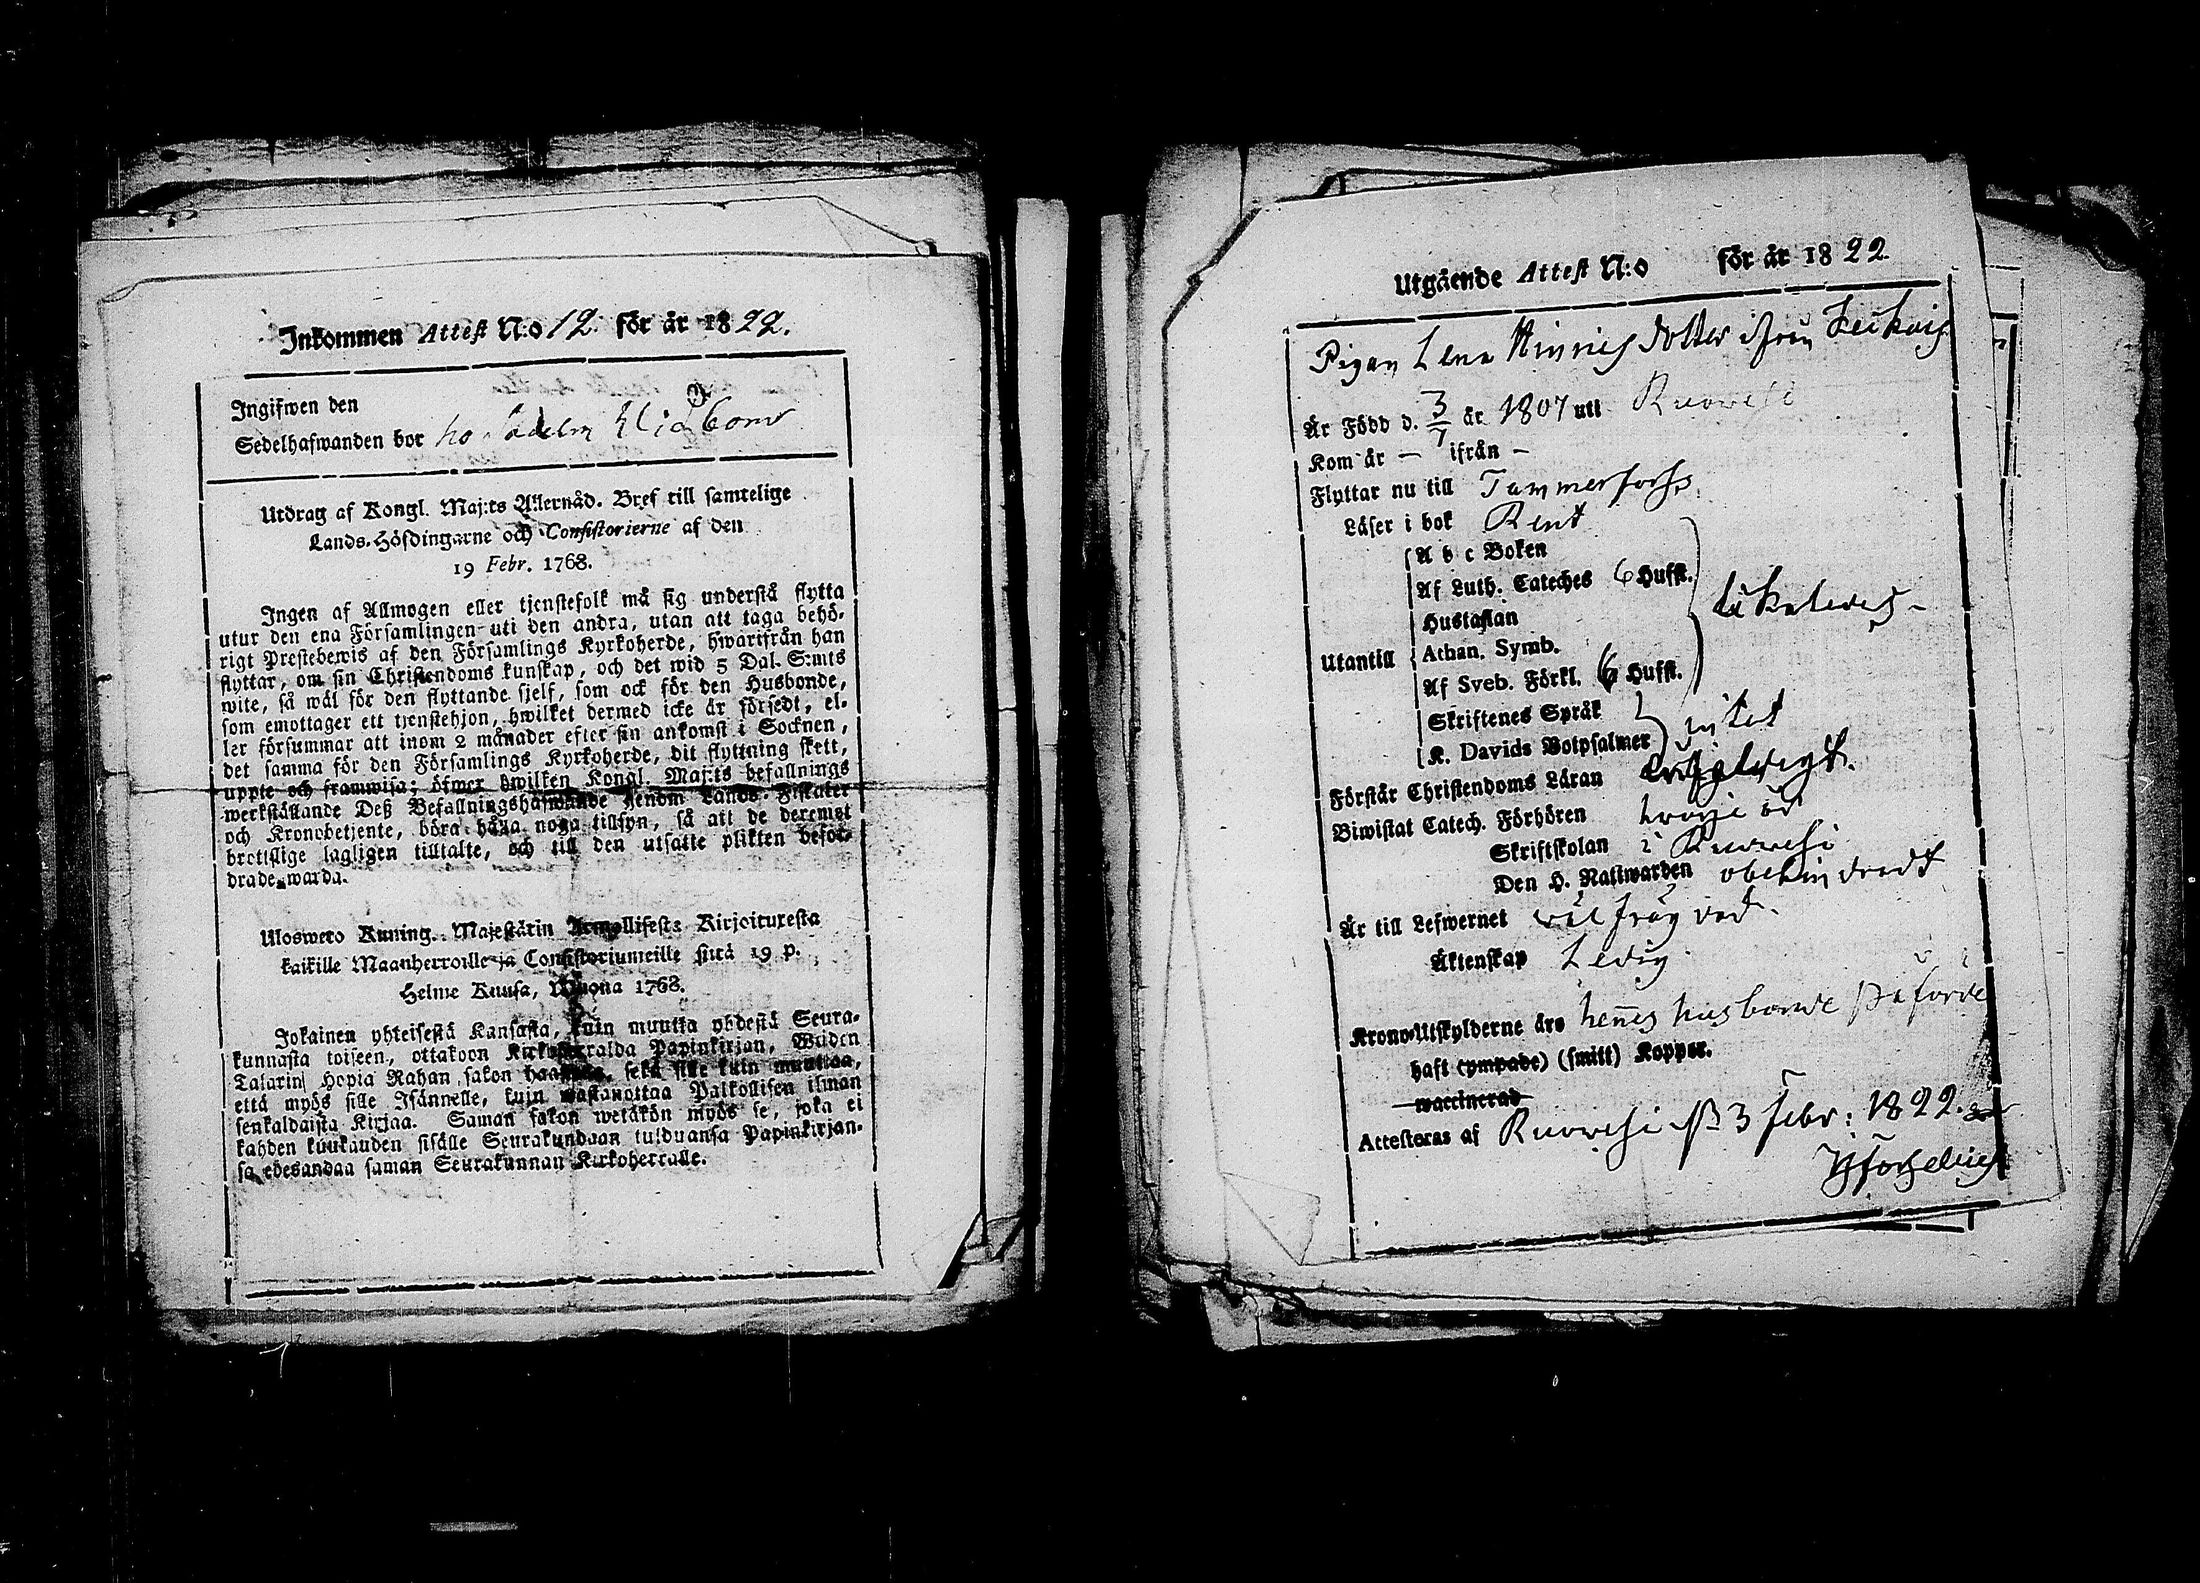 Inkommen Attest N:o 12. för år 1822.
Ingifwen den
Sedelhafwanden bor hos
Utdrag af Kongl. Maj:ts Allernåd. Bref till samtelige
Lands-Höfdingarne och Consistorierne af den
19 Febr. 1768.
Ingen af Allmogen eller tjenstefolk må sig understå flytta
utur den ena Församlingen uti den andra, utan att taga behö-
rigt Prestebewis af den Församlings Kyrkoherde, hwarifrån han
flyttar, om sin Christendoms kunskap, och det wid 5 Dal. S:mts
wite, så wäl för den flyttande sjelf, som ock för den Husbonde,
som emottager ett tjenstehjon, hwilket dermed icke är försedt, el-
ler försummar att inom 2 månader efter sin ankomst i Socknen,
det samma för den Församlings Kyrkoherde, dit flyttning skett,
uppte och framwisa; öfwer hwilken Kongl. Maj:ts befallnings
werkställande Deß Befallningshafwande genom Lands-Fiskaler
och Kronobetjente, böra hålla noga tillsyn, så att de deremot
brottslige lagligen tilltalte, och till den utsatte plikten befor-
drade warda.
Ulosweto Kuning. Majestätin Armollisesta Kirjoituxesta
kaikille Maanherroille ja Consistoriumeille siitä 19 p.
Helme Kuusa, Wuona 1768.
Jokainen yhteisestä Kansasta, kuin muutta yhdestä Seura-
kunnasta toiseen, ottakoon Kirkoherralda Papinkirjan, Wiiden
Talarin Hopia Rahan sakon haastolla, sekä sille kuin muuttaa,
että myös sille Isännelle, kuin wastanottaa Palkollisen ilman
senkaldaista Kirjaa. Saman sakon wetäkön myös se, joka ei
kahden kuukauden sisälle Seurakundaan tulduansa Papinkirjan-
sa edesandaa saman Seurakunnan Kirkoherralle.
Utgående Attest N:o för år 1822.
Pigan Lena Hinrics dotter ifrån
Är Född d. 3/7 år 1807 uti Ruovesi
Kom år — ifrån —
Flyttar nu till Tammerfors
Läser i bok Rent
A b c Boken
Af Luth. Cateches 6 Hufst.
Hustaflan
Utantill Athan. Symb.
Af Sveb. Förkl. 6 Hufst.
Skriftenes Språk
K. Davids Botpsalmer intet
Förstår Christendoms Läran
Biwistat Catech. Förhören
Skriftskolan i Ruovesi
Den H. Nattwarden obehindradt
Är till Lefwernet väl frägdad.
Äktenskap Ledig
Krono-Utskylderne äro hennes husbonde påförde
haft (ympade) (smitt) Koppor.
waccinerad
Attesteras af Ruovesi d. 3 Febr: 1822.